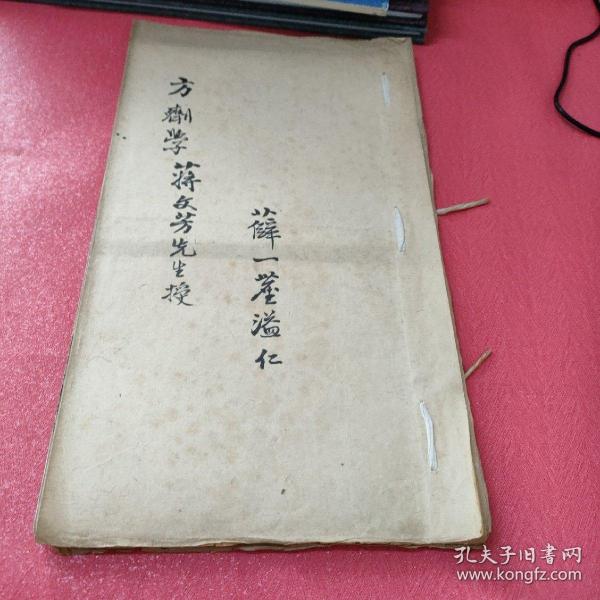 方劑学蒋文芳先生授
薛一溢仁
孔夫子旧书网
www.kongfz.com